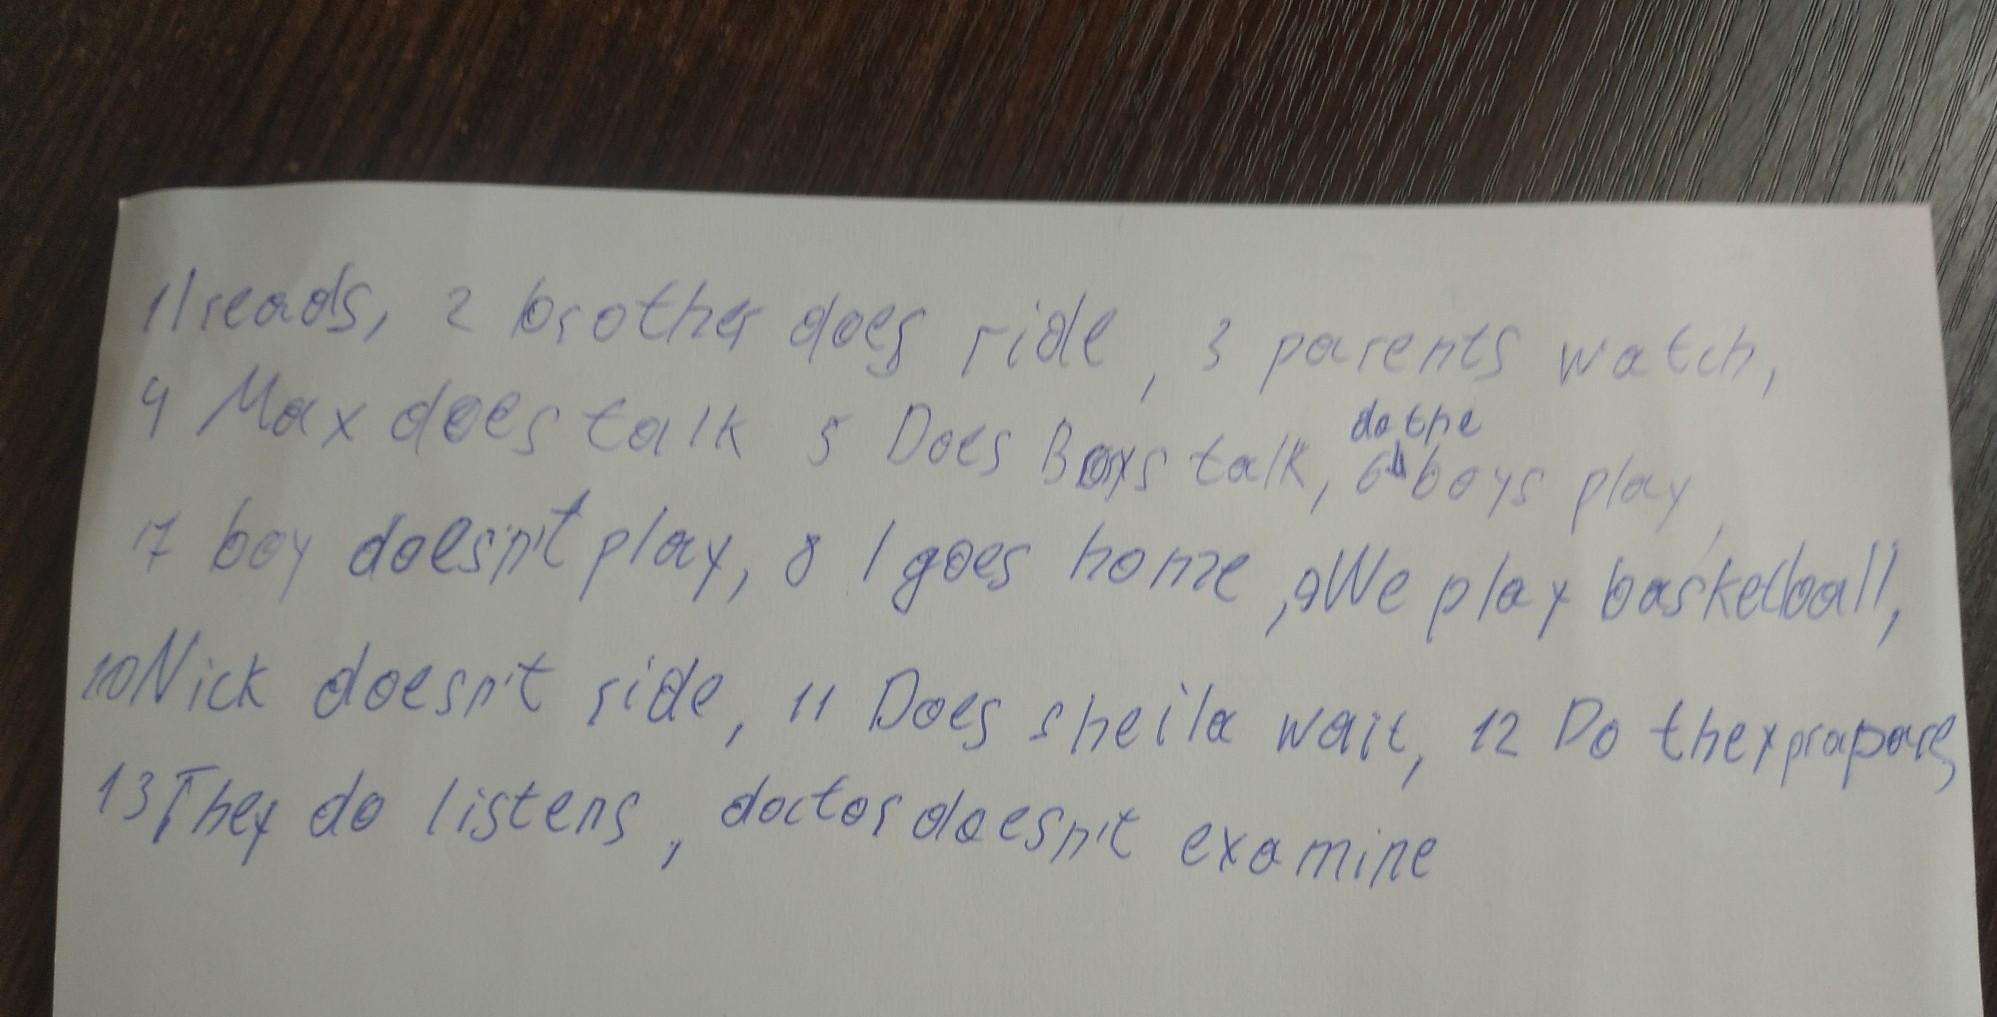 1 I reads, 2 brother does ride, 3 parents watch,
4 Max does talk 5 Does Boys talk, 6 do the boys play,
7 boy doesn't play, 8 I goes home, 9 We play basketball,
10 Nick doesn't ride, 11 Does sheila wait, 12 Do they prapare,
13 They do listens, doctor doesn't examine